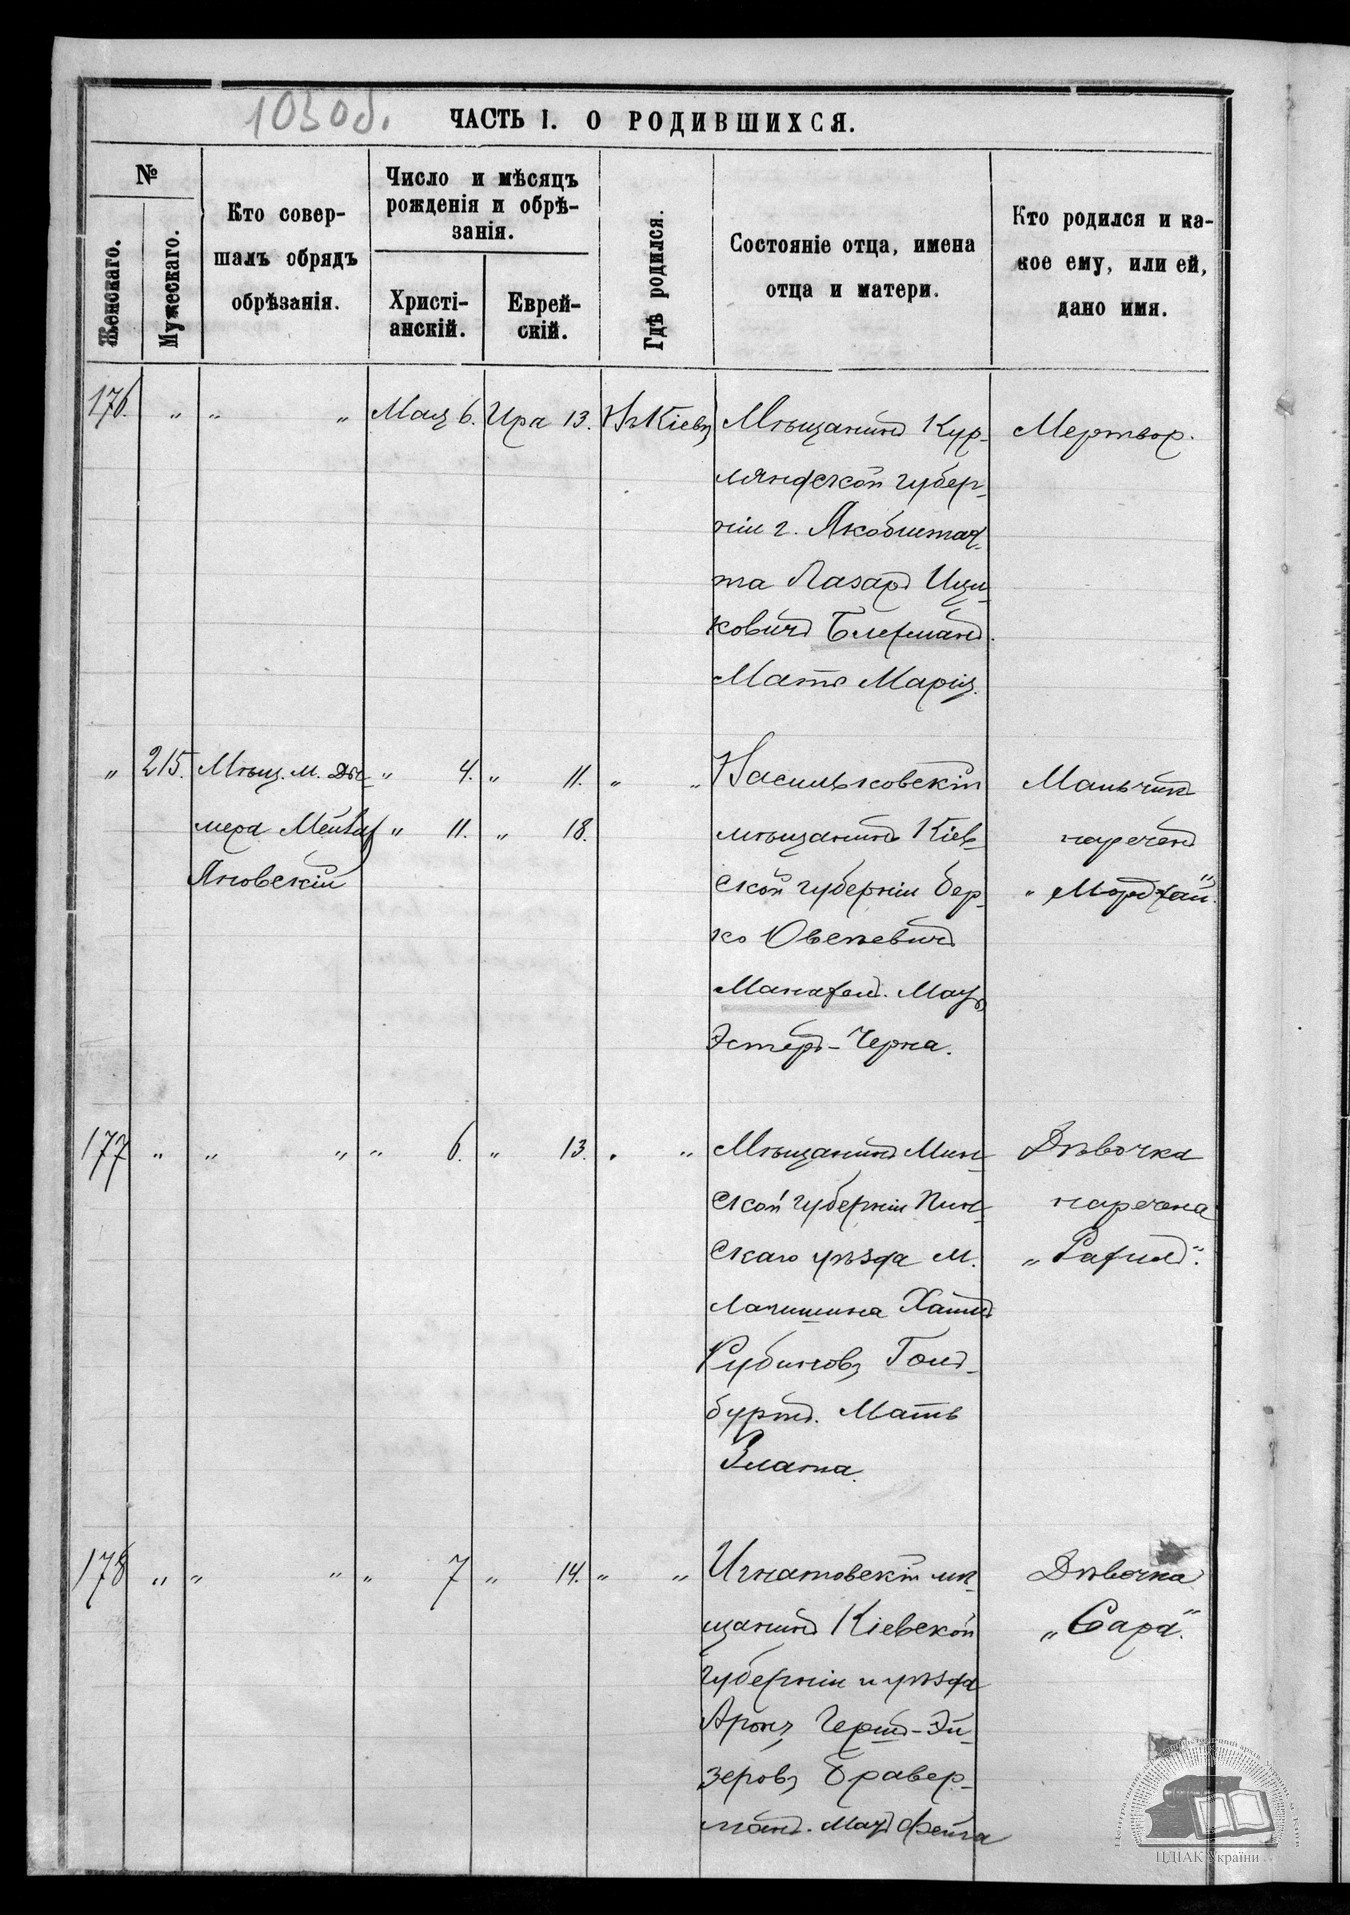 103 об.
ЧАСТЬ I. О РОДИВШИХСЯ.
№
Женскаго.
Мужескаго.
Кто совер-
шалъ обрядъ
обрѣзанія.
Число и мѣсяцъ
рожденія и обрѣ-
занія.
Христі-
анскій.
Еврей-
скій.
Гдѣ родился.
Состояніе отца, имена
отца и матери.
Кто родился и ка-
кое ему, или ей,
дано имя.
176. " " " Мая 6. Ира 13. Въ Кіевѣ
Мѣщанинъ Кур-
ляндской губер-
ніи г. Якобштад-
та Лазарь Ици-
ковичъ
Мать Марія.
Мертвор.
" 215. Мѣщ. м. Ды-
мера Яновскій
" 4. " 11. " "
" 11. " 18.
Васильковскій
мѣщанинъ Кіев-
ской губерніи Бер-
ко Овсеевичъ
Мать
Эстеръ-Черна.
Мальчикъ
нареченъ
"Мордхай".
177 " " " " 6. " 13. " "
Мѣщанинъ Мин-
ской губерніи Пин-
скаго уѣзда м.
Логишина Хаимъ
Рубиновъ Голд-
бургъ. Мать
Злата.
Дѣвочка
наречена
"Рахиль".
178 " " " " 7 " 14. " "
Игнатовскій мѣ-
щанинъ Кіевской
губерніи и уѣзда
Аронъ Гершъ-Эй-
зеровъ Бравер-
манъ. Мать Фейга
Дѣвочка
"Сара".
ЦДІАК України